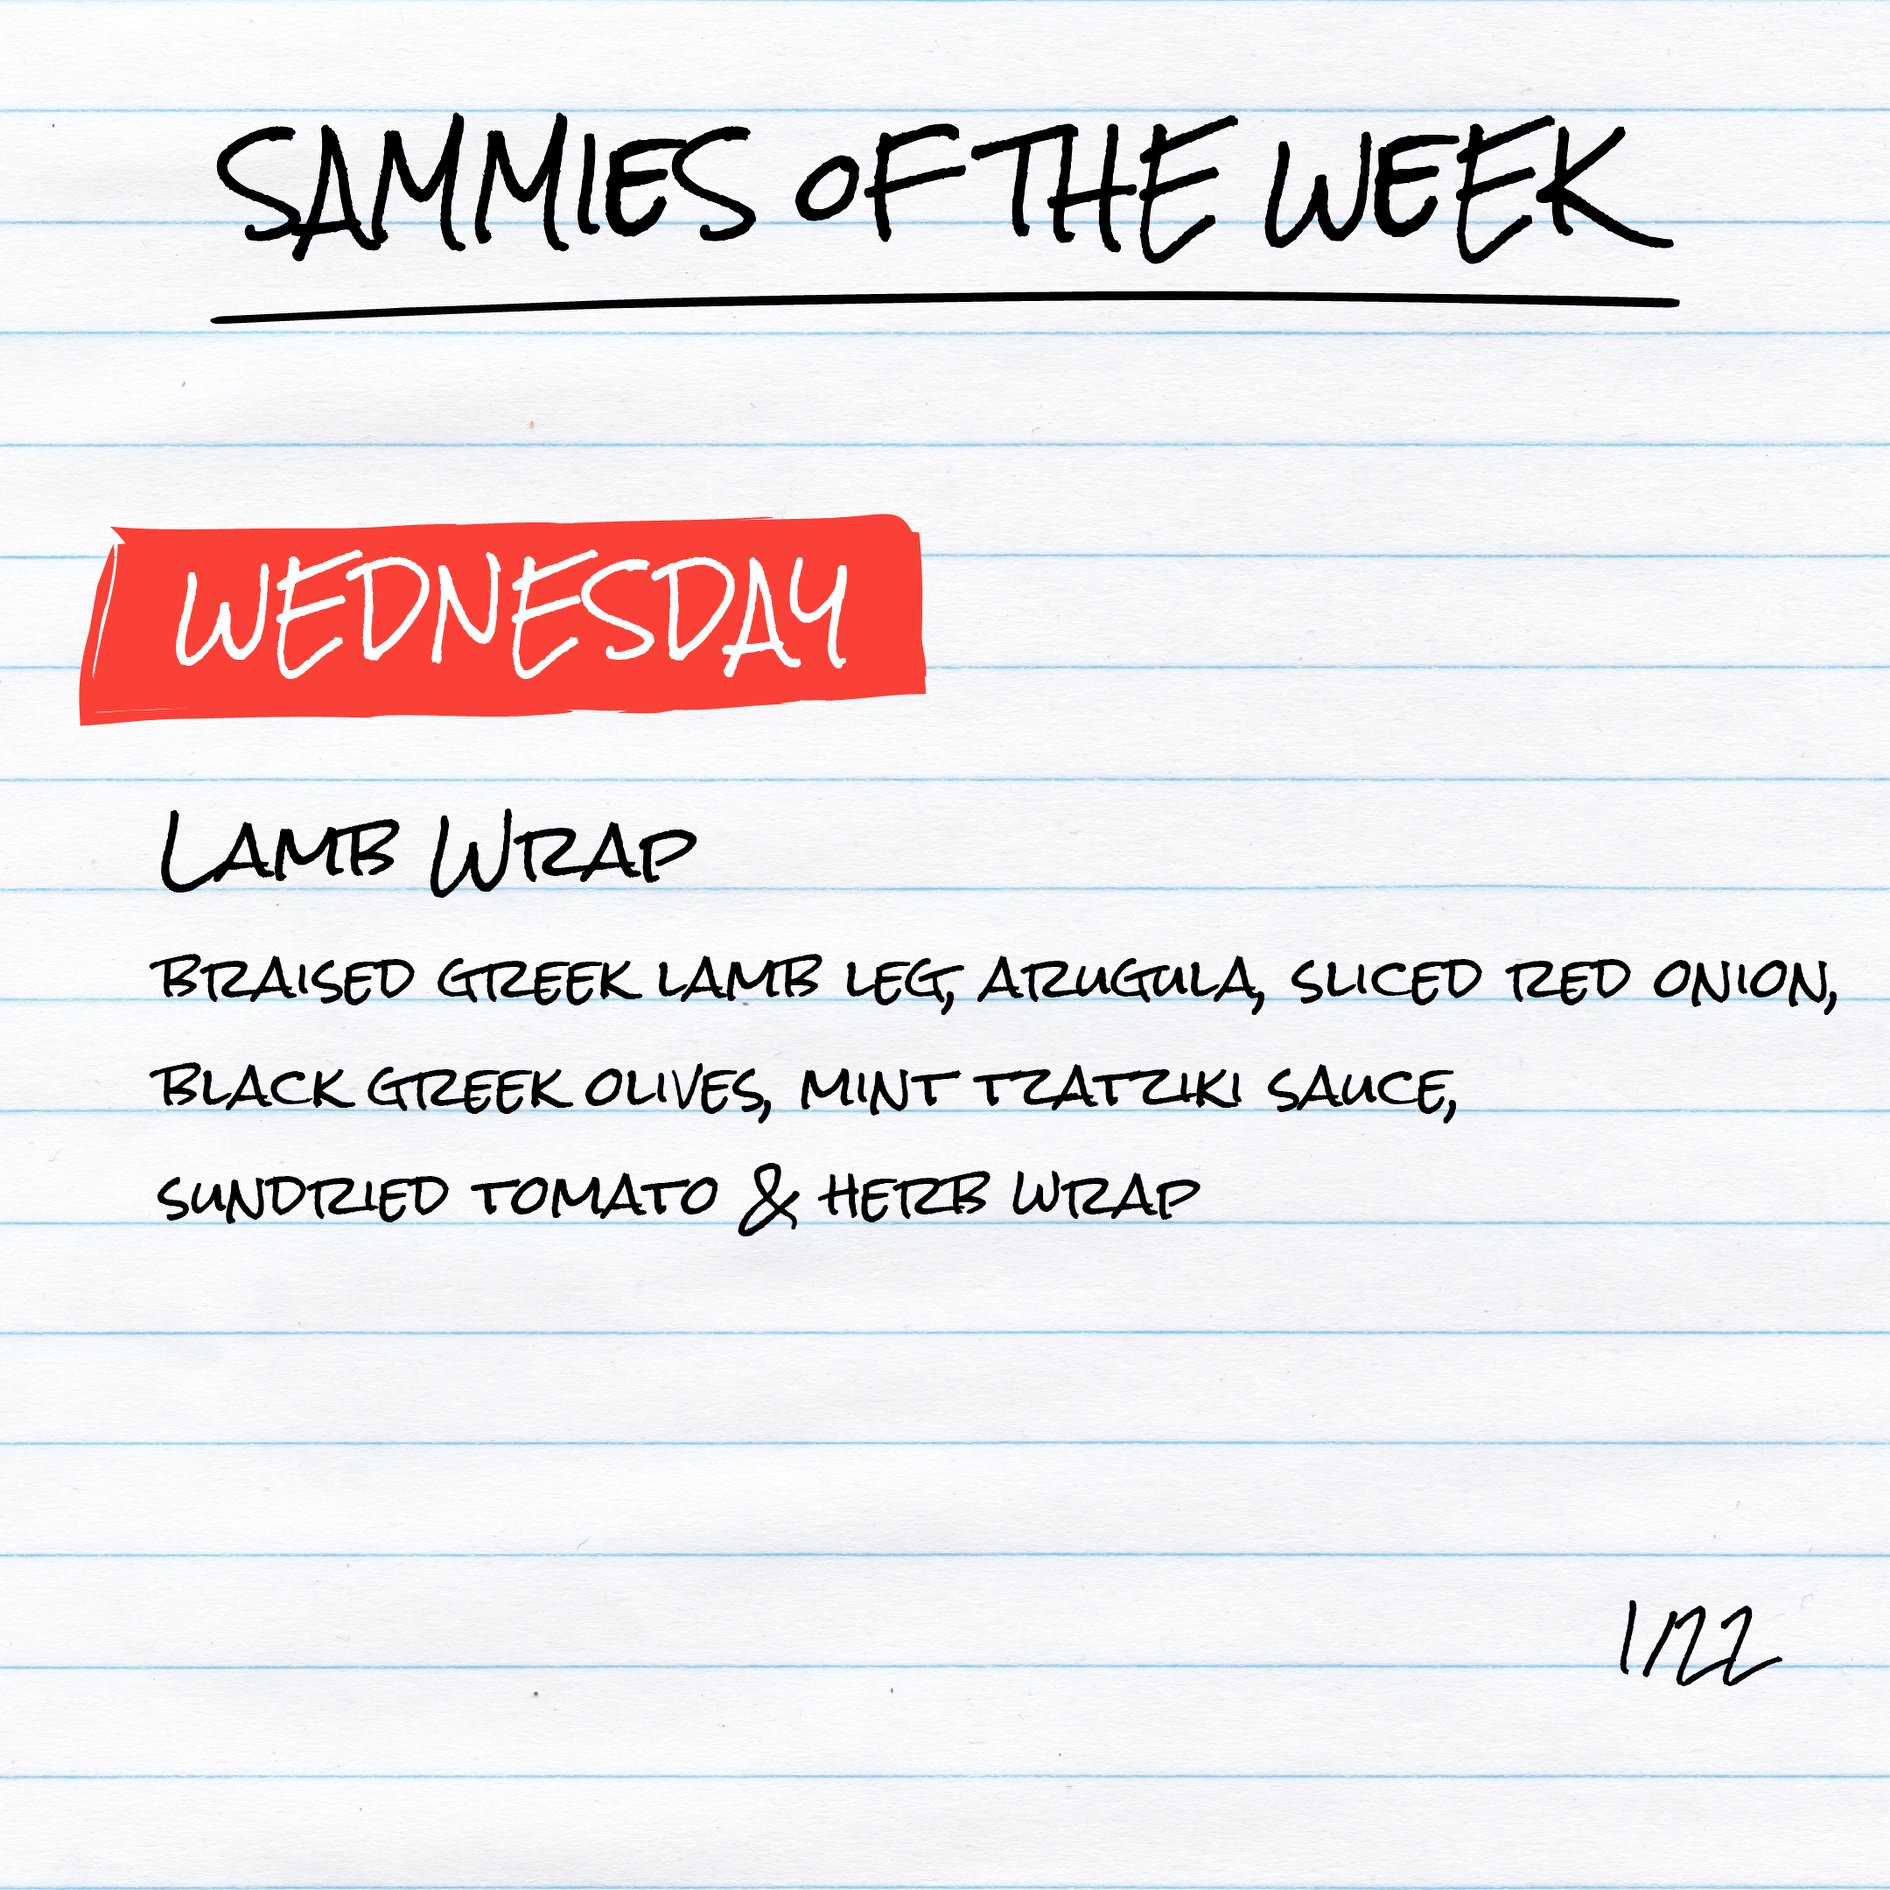 SAMMIES OF THE WEEK
WEDNESDAY
LAMB WRAP
BRAISED GREEK LAMB LEG, ARUGULA, SLICED RED ONION,
BLACK GREEK OLIVES, MINT TZATZIKI SAUCE,
SUNDRIED TOMATO & HERB WRAP
1/22